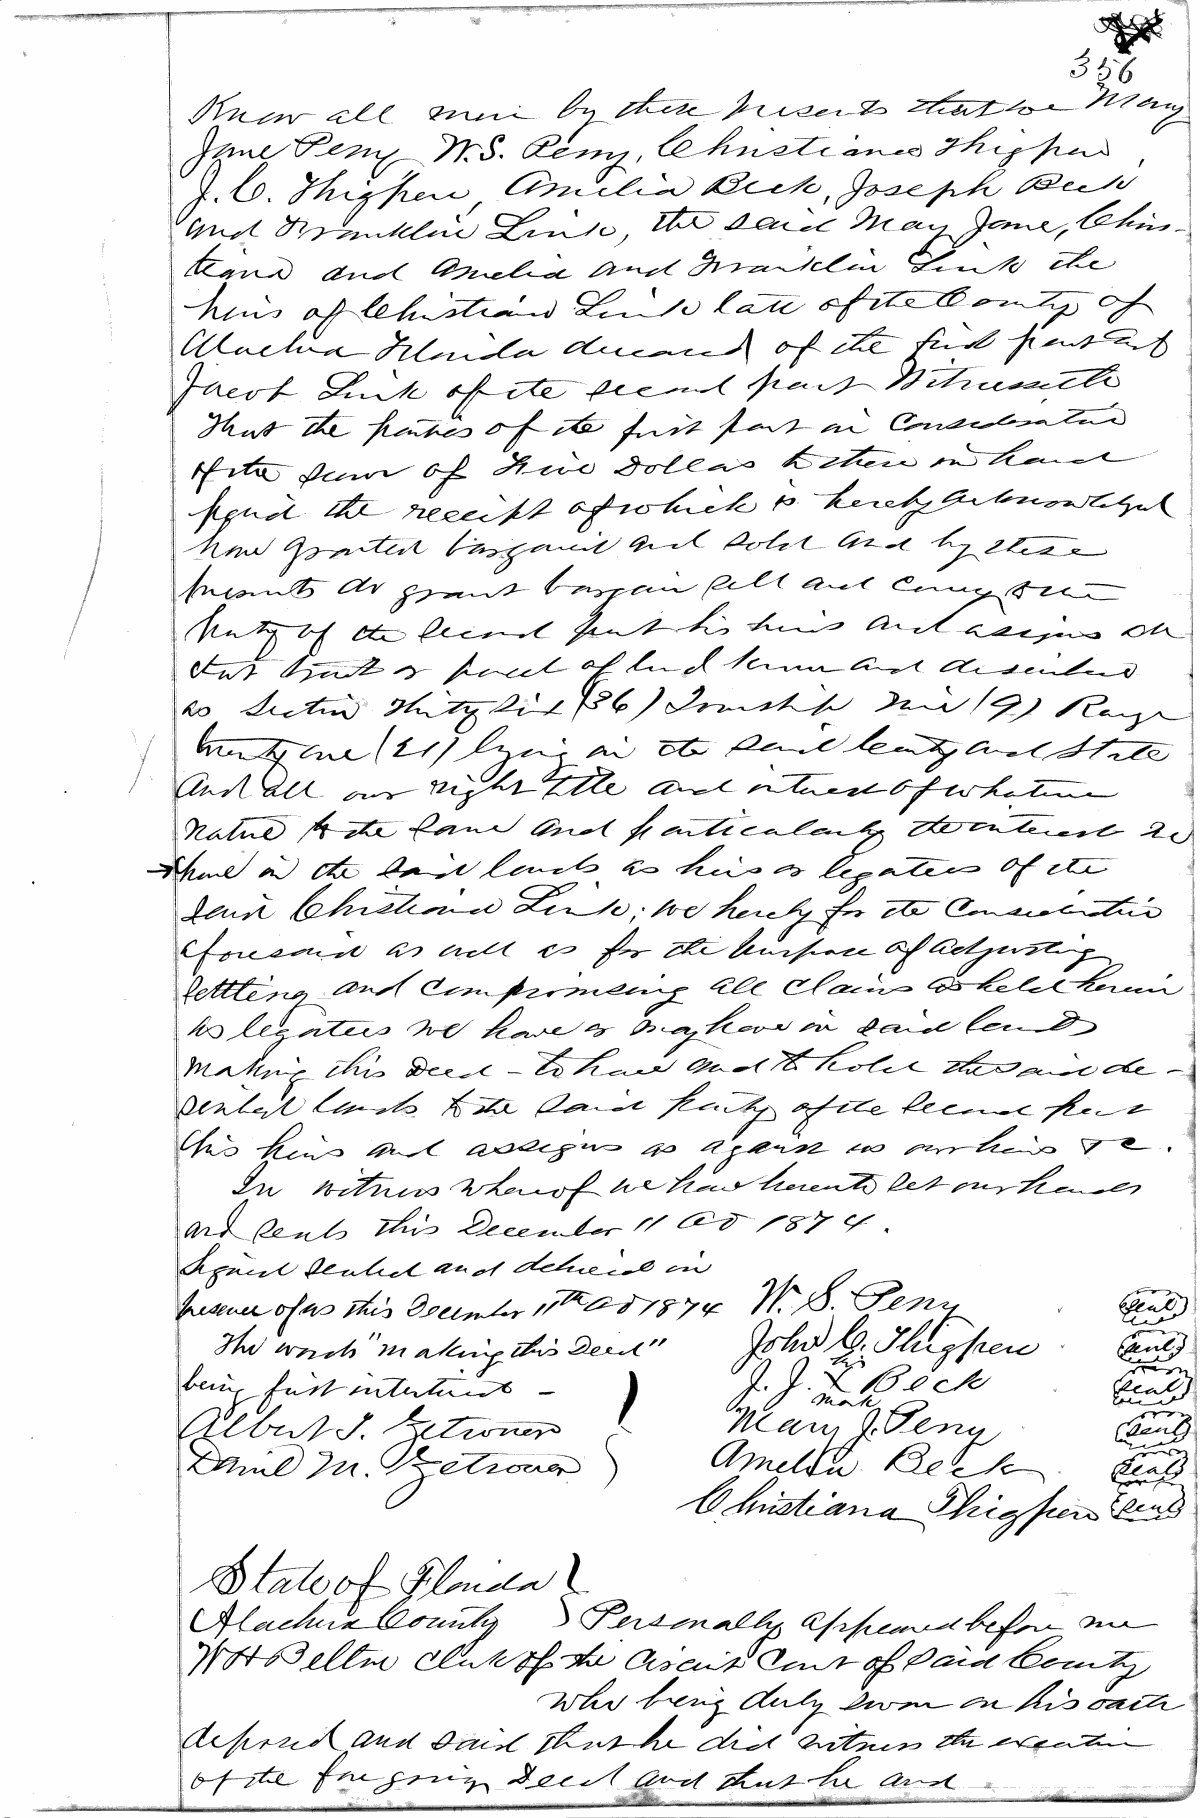 356
Know all men by these presents that we Mary
Jane Perry W.S. Perry, Christiana Thigpen,
J.C. Thigpen, Amelia Beck, Joseph Beck
and Franklin Link, the said Mary Jane, Chris-
tiana and Amelia and Franklin Link the
heirs of Christian Link late of the County of
Alachua Florida deceased of the first part and
Jacob Link of the second part Witnesseth
That the parties of the first part in Consideration
of the sum of Five Dollars to them in hand
paid the receipt of which is hereby acknowledged
have granted bargained and sold and by these
presents do grant bargain sell and convey to the
party of the second part his heirs and assigns all
that tract or parcel of land known and described
as Section Thirty Six (36) Township Nine (9) Range
Twenty one (21) lying in the said County and State
and all our right title and interest of whatever
nature to the same and particularly the interest we
have in the said lands as heirs or legatees of the
said Christian Link; we hereby for the Consideration
aforesaid as well as for the purpose of adjusting
settling and compromising all claims as held herein
as legatees we have or may have in said lands
making this Deed - to have and to hold the said de-
scribed lands to the said party of the second part
his heirs and assigns as against us our heirs &c.
In witness whereof we have hereunto set our hands
and seals this December 11 AD 1874.
Signed sealed and delivered in
presence of us this December 11th AD 1874 W. S. Perry (seal)
The words "making this Deed" John C. Thigpen (seal)
being first interlined - J. J. his X mark Beck (seal)
Albert I. Zetrouer Mary J. Perry (seal)
Daniel M. Zetrouer Amelia Beck (seal)
Christiana Thigpen (seal)
State of Florida
Alachua County Personally appeared before me
W H Belton Clerk of the Circuit Court of Said County
who being duly sworn on his oath
deposed and said that he did witness the execution
of the foregoing Deed and that he and